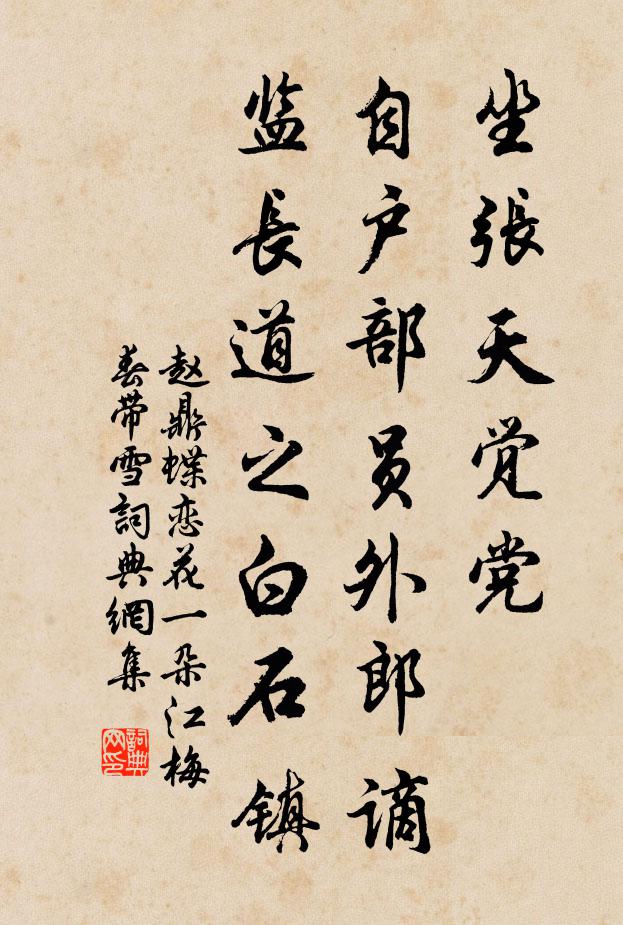 坐張天觉党
自户部员外郎谪
监長道之白石镇
赵鼎蝶恋花一朵江梅
春带雪詞典網集
詞典
网印